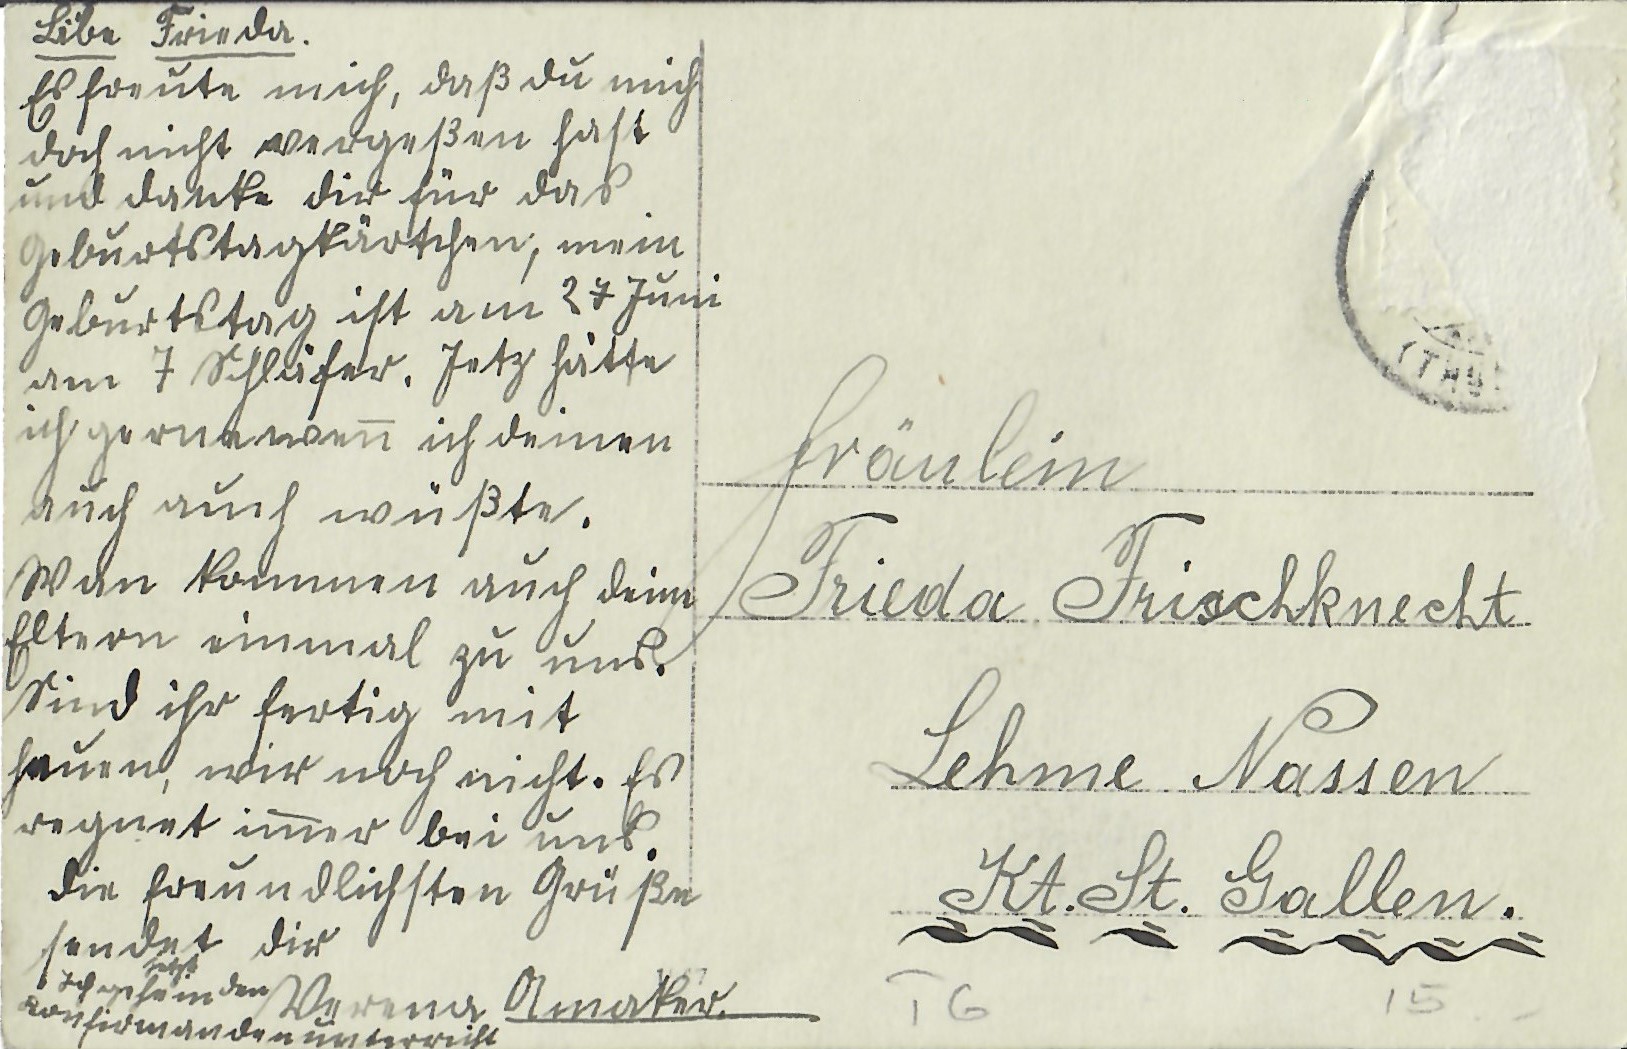 Libe Frieda.
Es freute mich, daß du mich
doch nicht vergeßen hast
und danke dir für das
Geburtstagkärtchen, mein
Geburtstag ist am 27 Juni
am 7 Schläfer. Jetz hätte
ich gerne wen̄ ich deinen
auch auch wüßte.
Wan kommen auch deine
Eltern einmal zu uns.
Sind ihr fertig mit
heuen, wir noch nicht. Es
regnet im̄er bei uns.
Die freundlichsten Grüße
sendet dir
Verena Amaker.
Ich gehe jetzt in den
Konfirmandenunterricht
(THU
Fräulein
Frieda Frischknecht
Lehme Nassen
Kt. St. Gallen.
TG 15